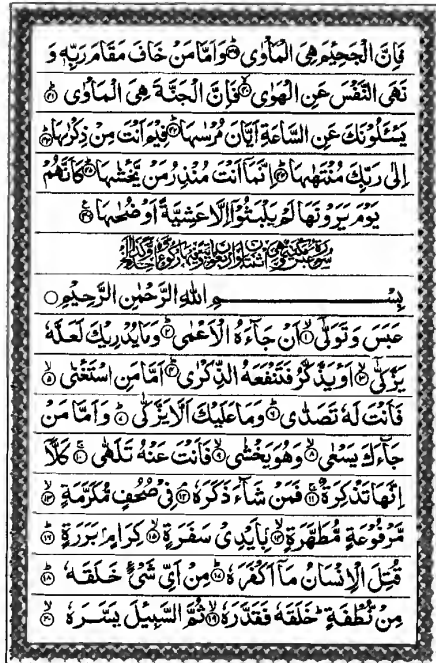 فَاِنَّ الْجَحِيْمَ هِيَ الْمَاْوٰى ۳۹ وَاَمَّا مَنْ خَافَ مَقَامَ رَبِّهٖ وَ
نَهَى النَّفْسَ عَنِ الْهَوٰى ۴۰ فَاِنَّ الْجَنَّةَ هِيَ الْمَاْوٰى ۴۱
يَسْـَٔلُوْنَكَ عَنِ السَّاعَةِ اَيَّانَ مُرْسٰىهَا ۴۲ فِيْمَ اَنْتَ مِنْ ذِكْرٰىهَا ۴۳
اِلٰى رَبِّكَ مُنْتَهٰىهَا ۴۴ اِنَّمَاۤ اَنْتَ مُنْذِرُ مَنْ يَّخْشٰىهَا ۴۵ كَاَنَّهُمْ
يَوْمَ يَرَوْنَهَا لَمْ يَلْبَثُوْۤا اِلَّا عَشِيَّةً اَوْ ضُحٰىهَا ۴۶
بِسْـــــــمِ اللهِ الرَّحْمٰنِ الرَّحِيْمِ ○
عَبَسَ وَتَوَلّٰىۤ ۱ اَنْ جَآءَهُ الْاَعْمٰى ۲ وَمَا يُدْرِيْكَ لَعَلَّهٗ
يَزَّكّٰىۤ ۳ اَوْ يَذَّكَّرُ فَتَنْفَعَهُ الذِّكْرٰى ۴ اَمَّا مَنِ اسْتَغْنٰى ۵
فَاَنْتَ لَهٗ تَصَدّٰى ۶ وَمَا عَلَيْكَ اَلَّا يَزَّكّٰى ۷ وَاَمَّا مَنْ
جَآءَكَ يَسْعٰى ۸ وَهُوَ يَخْشٰى ۹ فَاَنْتَ عَنْهُ تَلَهّٰى ۱۰ كَلَّاۤ
اِنَّهَا تَذْكِرَةٌ ۱۱ فَمَنْ شَآءَ ذَكَرَهٗ ۱۲ فِيْ صُحُفٍ مُّكَرَّمَةٍ ۱۳
مَّرْفُوْعَةٍ مُّطَهَّرَةٍۭ ۱۴ بِاَيْدِيْ سَفَرَةٍ ۱۵ كِرَامٍۭ بَرَرَةٍ ۱۶
قُتِلَ الْاِنْسَانُ مَاۤ اَكْفَرَهٗ ۱۷ مِنْ اَيِّ شَيْءٍ خَلَقَهٗ ۱۸
مِنْ نُّطْفَةٍ ؕ خَلَقَهٗ فَقَدَّرَهٗ ۱۹ ثُمَّ السَّبِيْلَ يَسَّرَهٗ ۲۰